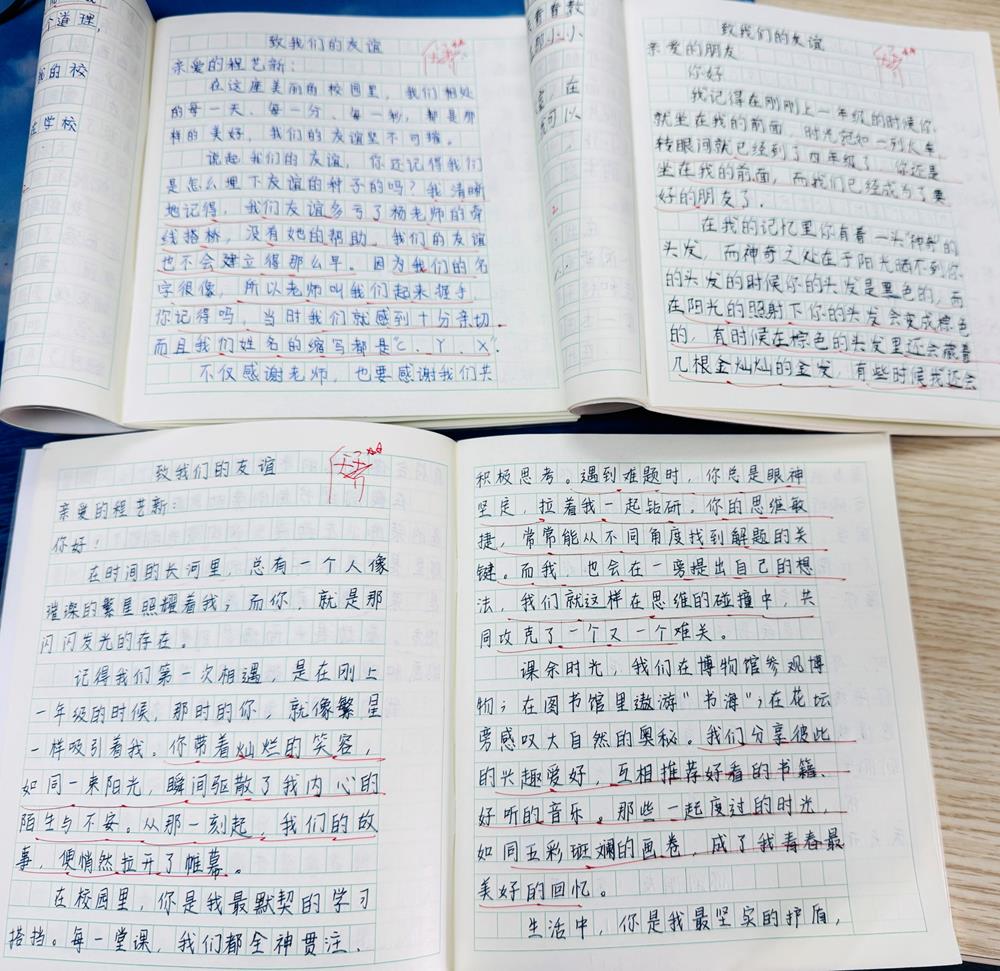 个道理，
我的校
学校
致我们的友谊
亲爱的程艺新：
在这座美丽的校园里，我们相处
的每一天、每一分、每一秒，都是那
样的美好，我们的友谊坚不可摧。
说起我们的友谊，你还记得我们
是怎么埋下友谊的种子的吗？我清晰
地记得，我们友谊多亏了杨老师的牵
线搭桥，没有她的帮助，我们的友谊
也不会建立得那么早。因为我们的名
字很像，所以老师叫我们起来握手，
你记得吗，当时我们就感到十分亲切
而且我们姓名的缩写都是“C、Y、X”。
不仅感谢老师，也要感谢我们共
小小
，在
可以
致我们的友谊
亲爱的朋友
你好
我记得在刚刚上一年级的时候你
就坐在我的前面，时光宛如一列火车，
转眼间就已经到了四年级了，你还是
坐在我的前面，而我们已经成为了要
好的朋友了。
在我的记忆里你有着一头“神奇”的
头发，而神奇之处在于阳光晒不到你
的头发的时候你的头发是黑色的，而
在阳光的照射下你的头发会变成棕色
的，有时候在棕色的头发里还会藏着
几根金灿灿的金发，有些时候我还会
致我们的友谊
亲爱的程艺新：
你好！
在时间的长河里，总有一个人像
璀璨的繁星照耀着我；而你，就是那
闪闪发光的存在。
记得我们第一次相遇，是在刚上
一年级的时候，那时的你，就像繁星
一样吸引着我。你带着灿烂的笑容，
如同一束阳光，瞬间驱散了我内心的
陌生与不安。从那一刻起，我们的故
事，便悄然拉开了帷幕。
在校园里，你是我最默契的学习
搭挡。每一堂课，我们都全神贯注、
积极思考。遇到难题时，你总是眼神
坚定，拉着我一起钻研，你的思维敏
捷，常常能从不同角度找到解题的关
键。而我，也会在一旁提出自己的想
法，我们就这样在思维的碰撞中，共
同攻克了一个又一个难关。
课余时光，我们在博物馆参观博
物；在图书馆里遨游“书海”；在花坛
旁感叹大自然的奥秘。我们分享彼此
的兴趣爱好，互相推荐好看的书籍、
好听的音乐。那些一起度过的时光，
如同五彩斑斓的画卷，成了我青春最
美好的回忆。
生活中，你是我最坚实的护盾，